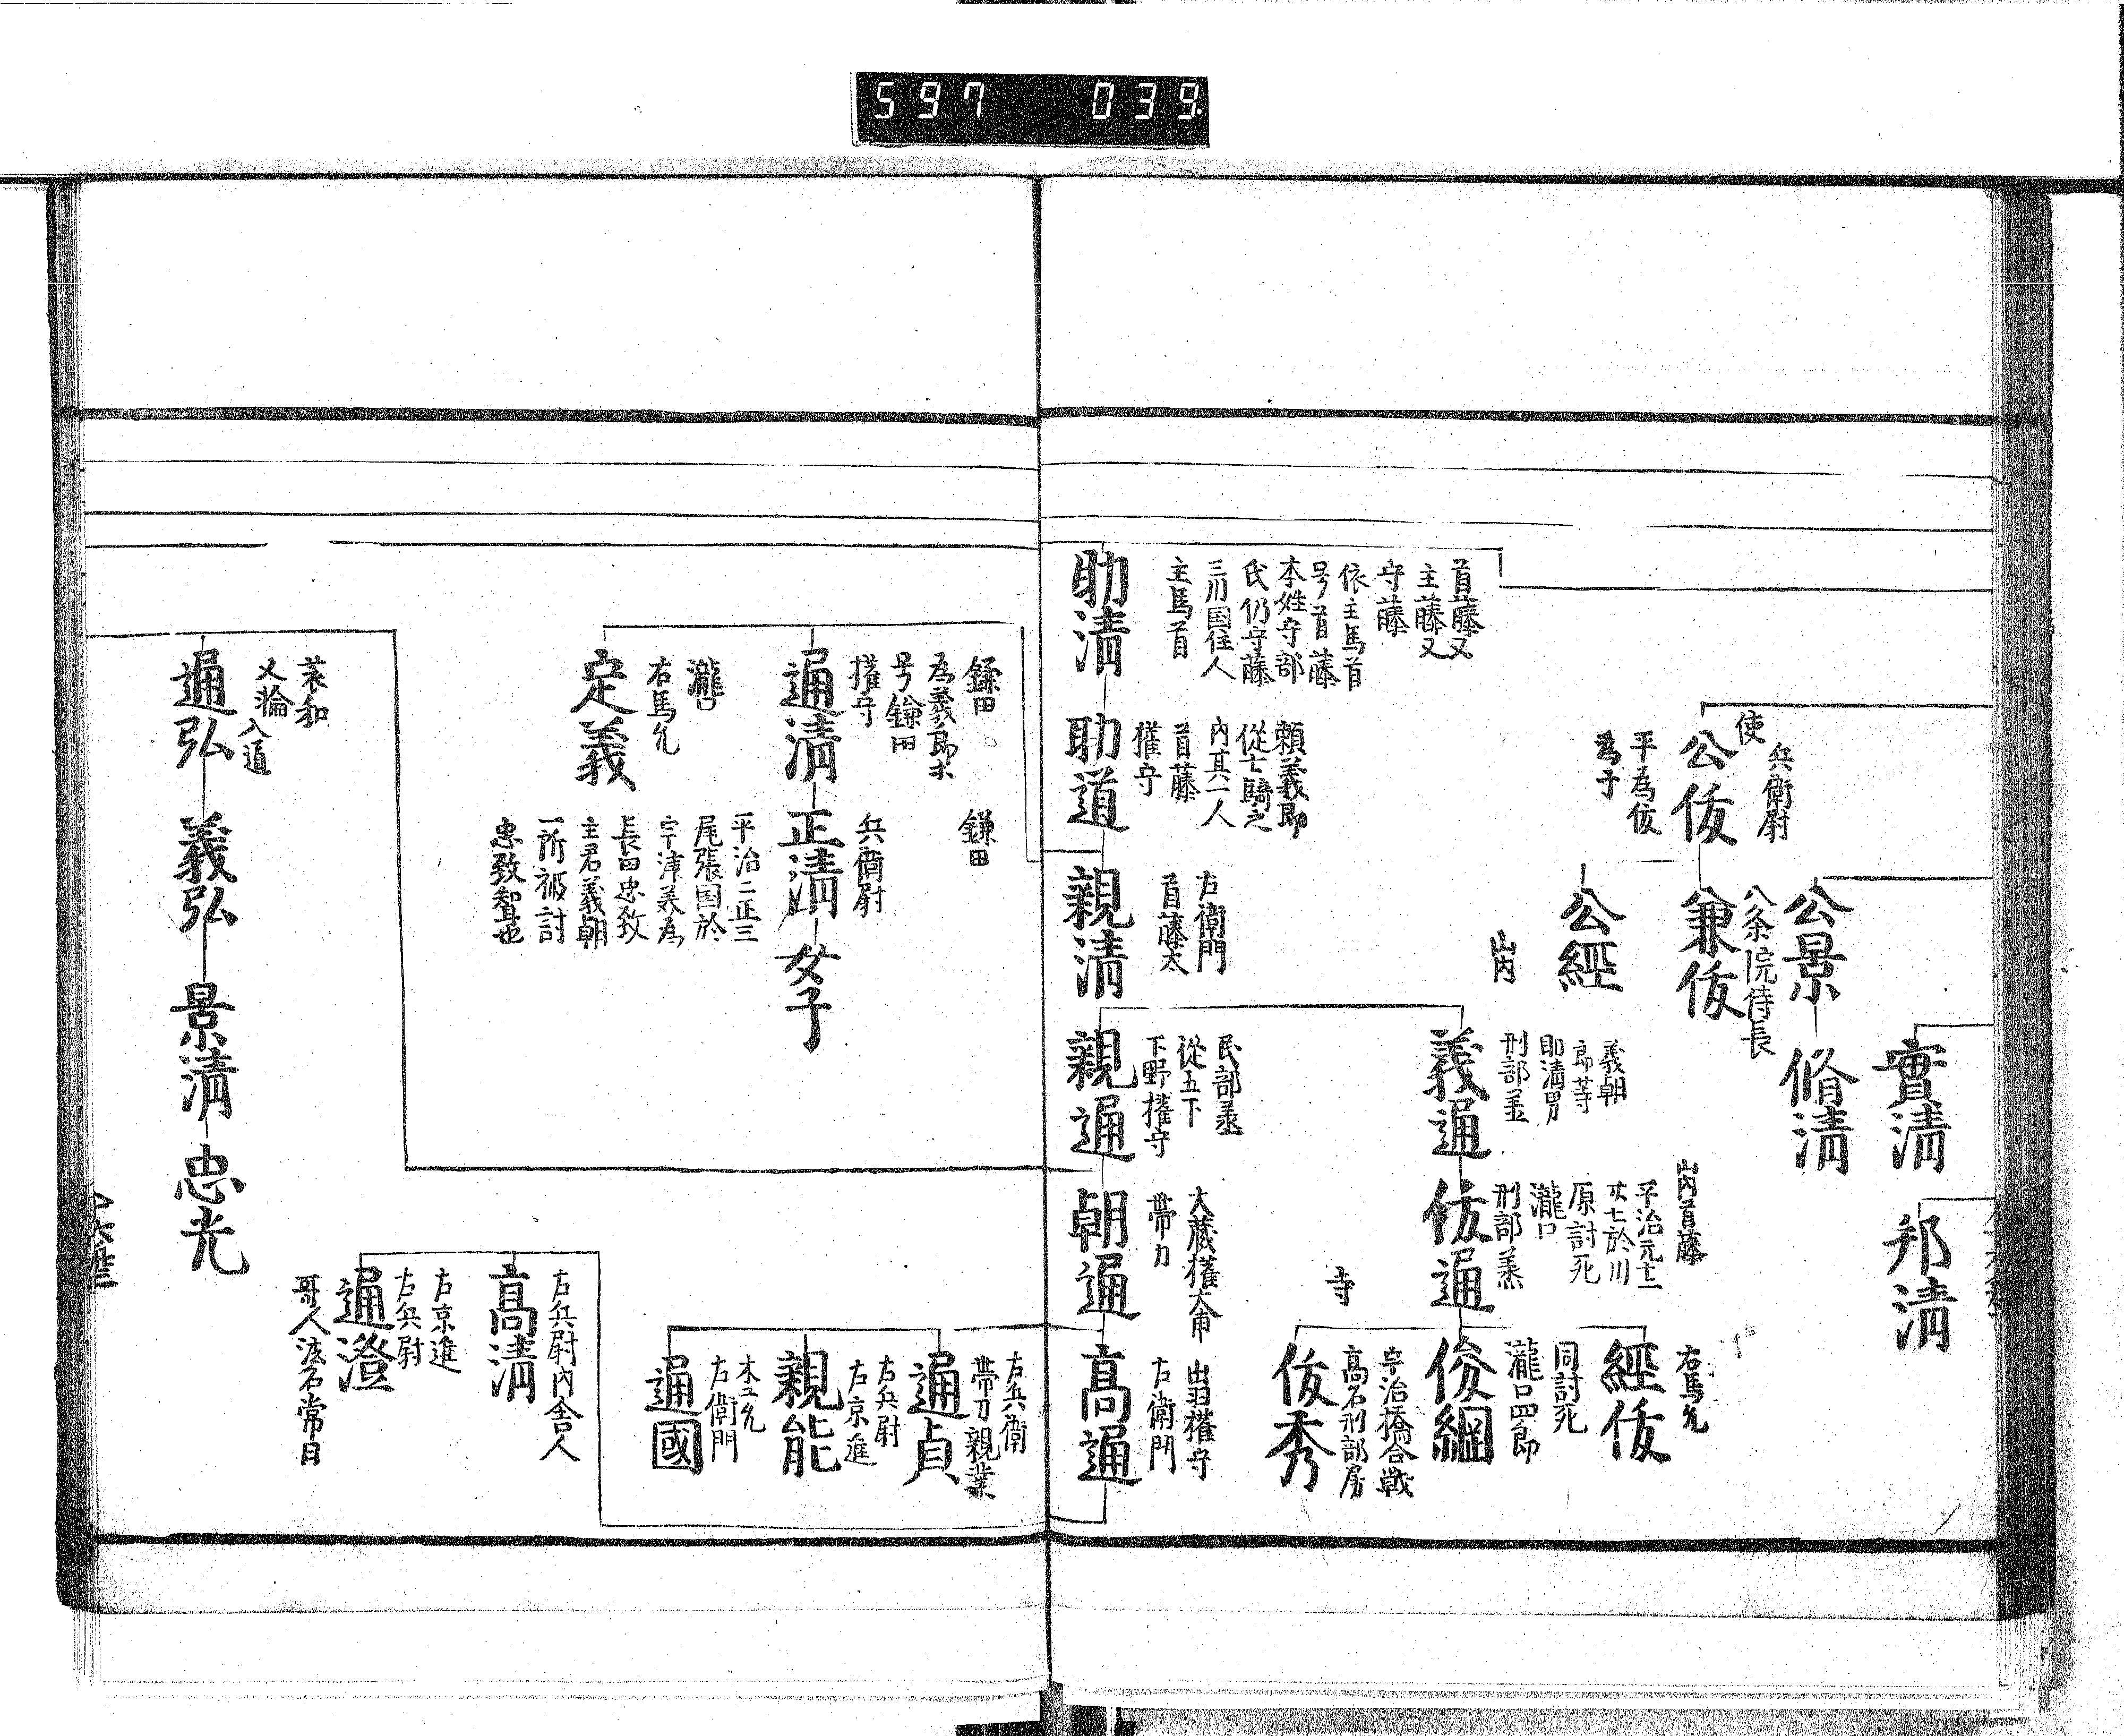 597 039
實清
邦清
公景
脩清
兵衛尉
使
公俊
平為俊
為子
八条院侍長
兼俊
公經
山内
首藤又
主藤又
守藤
依主馬首
号首藤
本姓守部
氏仍守藤
三川国住人
主馬首
助清
頼義郎
從七騎之
内其一人
首藤
權守
助道
左衛門
首藤太
親清
義朝
郎等
即清男
刑部丞
義通
山内首藤
平治元十二
廿七於川
原討死
瀧口
刑部丞
俊通
右馬允
經俊
同討死
瀧口四郎
俊綱
寺
宇治橋合戰
高名刑部房
俊秀
民部丞
從五下
下野權守
親通
大蔵權大甫
帶刀
朝通
出羽權守
左衛門
高通
鎌田
為義郎木
号鎌田
權守
通清
鎌田
兵衛尉
正清
平治二正三
尾張国於
宇津美為
長田忠致
主君義朝
一所被討
忠致智也
女子
瀧口
右馬允
定義
左兵衛
帶刀親業
通貞
左兵尉
左京進
親能
木工允
左衛門
通國
左兵尉内舎人
高清
左京進
左兵尉
通澄
入道
通弘
義弘
景清
忠光